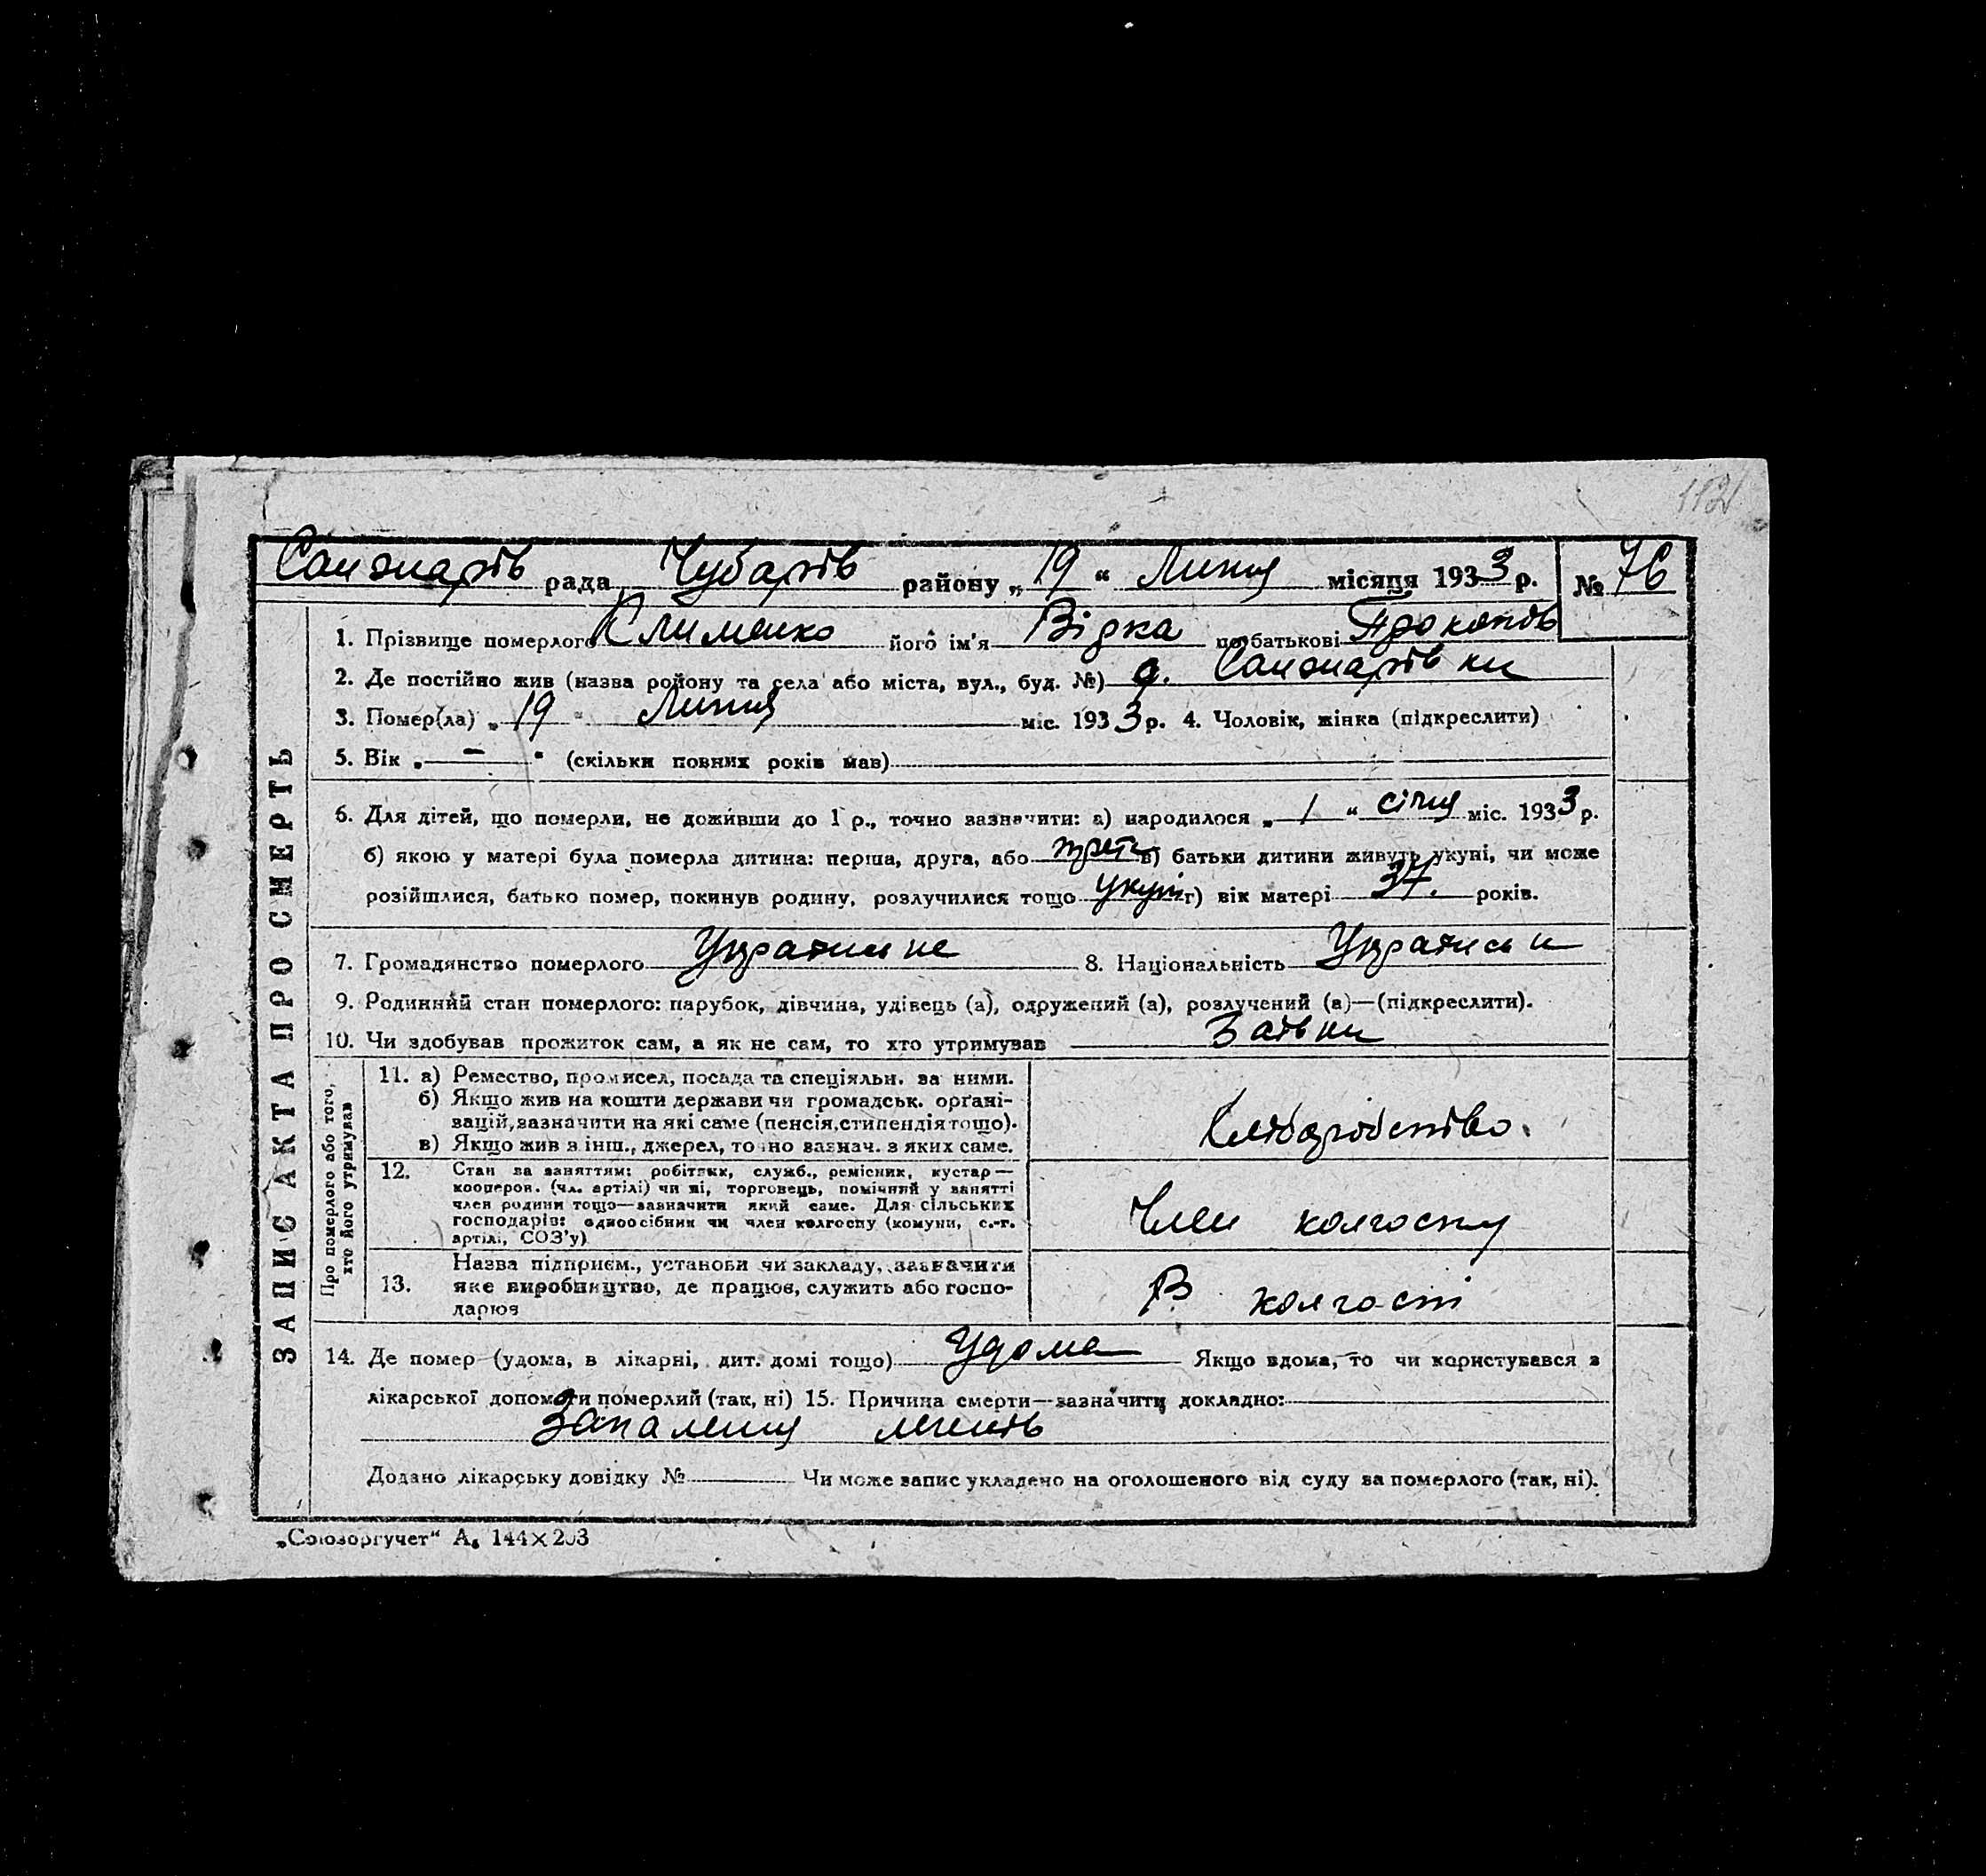 112
Санжарів рада Чубарів району „ 19 “ Липня місяця 1933 р. № 76
ЗАПИС АКТА ПРО СМЕРТЬ
1. Прізвище померлого Клименко його ім'я Вірка по батькові Прокопів
2. Де постійно жив (назва району та села або міста, вул., буд. №) с. Санжарівки
3. Помер(ла) „ 19 “ Липня міс. 1933 р. 4. Чоловік, жінка (підкреслити)
5. Вік „ — “ (скільки повних років мав)
6. Для дітей, що померли, не доживши до 1 р., точно зазначити: а) народилося „ 1 “ січня міс. 1933 р.
б) якою у матері була померла дитина: перша, друга, або в) батьки дитини живуть укупі, чи може
розійшлися, батько помер, покинув родину, розлучилися тощо укупі г) вік матері 37. років.
7. Громадянство померлого 8. Національність
9. Родинний стан померлого: парубок, дівчина, удівець (а), одружений (а), розлучений (а)—(підкреслити).
10. Чи здобував прожиток сам, а як не сам, то хто утримував
Про померлого або того, хто його утримував
11. а) Ремество, промисел, посада та спеціяльн. за ними.
б) Якщо жив на кошти держави чи громадськ. органі-
зацій, зазначити на які саме (пенсія, стипендія тощо).
в) Якщо жив з інш., джерел, точно зазнач. з яких саме.
Хліборобство.
12. Стан за заняттям: робітник, служб., ремісник, кустар—
кооперов. (чл. артілі) чи ні, торговець, помічний у занятті
член родини тощо—зазначити який саме. Для сільських
господарів: одноосібник чи член колгоспу (комуни, с.-г.
артілі, СОЗ'у)
Член колгоспу
13. Назва підприєм., установи чи закладу, зазначити
яке виробництво, де працює, служить або госпо-
дарює
В колгоспі
14. Де помер (удома, в лікарні, дит. домі тощо) Удома Якщо вдома, то чи користувався з
лікарської допомоги померлий (так, ні) 15. Причина смерти—зазначити докладно:
Запалення легенів
Додано лікарську довідку № Чи може запис укладено на оголошеного від суду за померлого (так, ні).
„Союзоргучет“ А₆ 144×203